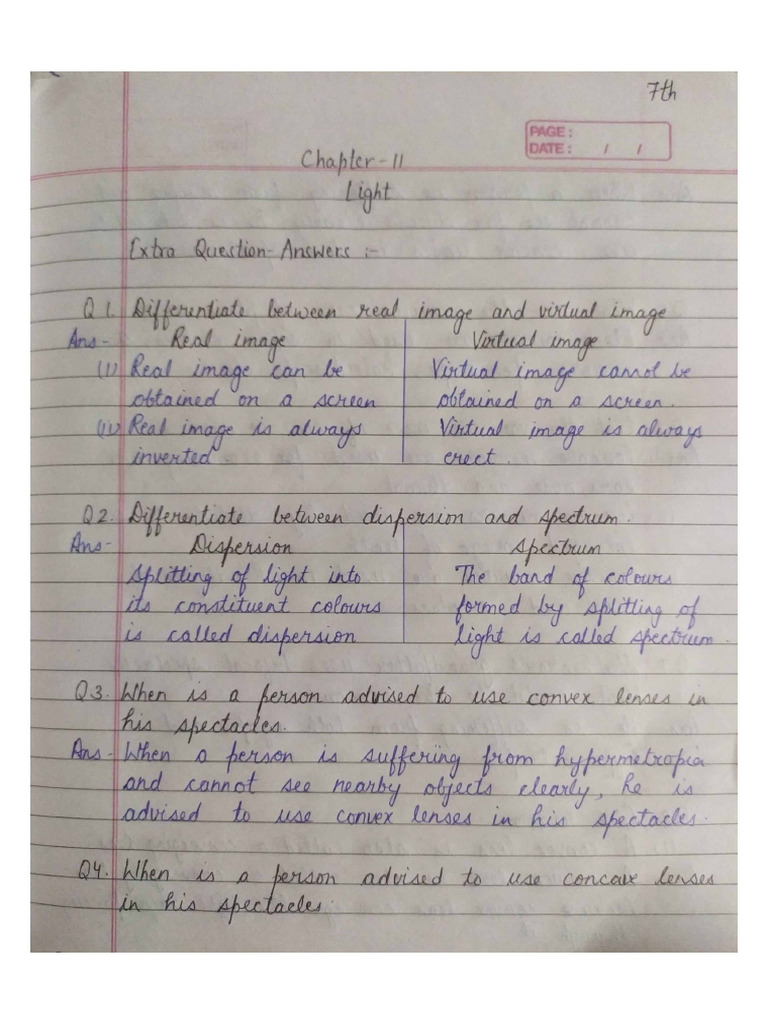 7th
PAGE:
DATE: / /
Chapter-11
Light
Extra Question-Answers :-
Q 1. Differentiate between real image and virtual image
Ans- Real image Virtual image
(i) Real image can be Virtual image cannot be
obtained on a screen obtained on a screen.
(ii) Real image is always Virtual image is always
inverted erect.
Q2. Differentiate between dispersion and spectrum.
Ans- Dispersion Spectrum
Splitting of light into The band of colours
its constituent colours formed by splitting of
is called dispersion light is called spectrum.
Q3. When is a person advised to use convex lenses in
his spectacles.
Ans- When a person is suffering from hypermetropia
and cannot see nearby objects clearly, he is
advised to use convex lenses in his spectacles.
Q4. When is a person advised to use concave lenses
in his spectacles.